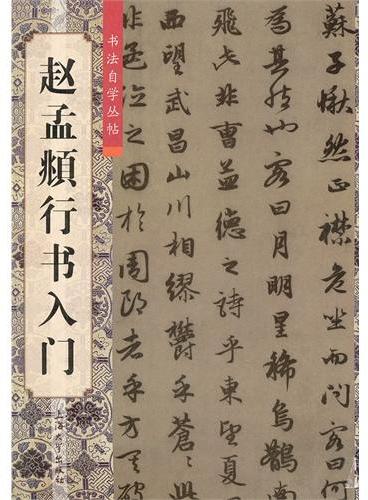 书法自学丛帖
赵孟頫行书入门
上海大学出版社
蘇子愀然正襟危坐而問客曰何
為其然也客曰月明星稀烏鵲南
飛此非曹孟德之詩乎東望夏
西望武昌山川相繆鬱乎蒼〻
非孟德之困於周郎者乎方其破